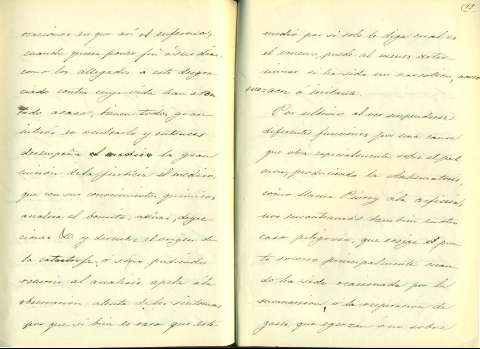 ocasiones en que así el enfermo,
cuando quiere poner fin á sus dias,
como los allegados a este desgra-
ciado contra cuya vida han aten-
tado acaso, tienen todos gran
interés en ocultarlo y entonces
desempeña el medico la gran
mision de la justicia el medico,
que con sus conocimientos quimicos
analiza el vomito, orina, deyec-
ciones & y descubre el origen de
la catastrofe, ó si no pudiendo
recurrir al analisis apela á la
observacion atenta de los sintomas
por que si bien es raro que este
(13
medio por si solo le diga cual es
el veneno, puede al menos deter-
minar si ha sido un narcotico,
acre ó irritante.
Por ultimo al ver suspenderse
diferentes funciones por una causa
que obra especialmente sobre el pul-
mon, produciendo la
como llama Piorry á la asfixia,
nos encontramos tambien en otro
caso peligroso, que exige el pron-
to socorro principalmente cuan-
do ha sido ocasionada por la
sumersion, ó la respiracion de
gases, que egerzan ó no sobre